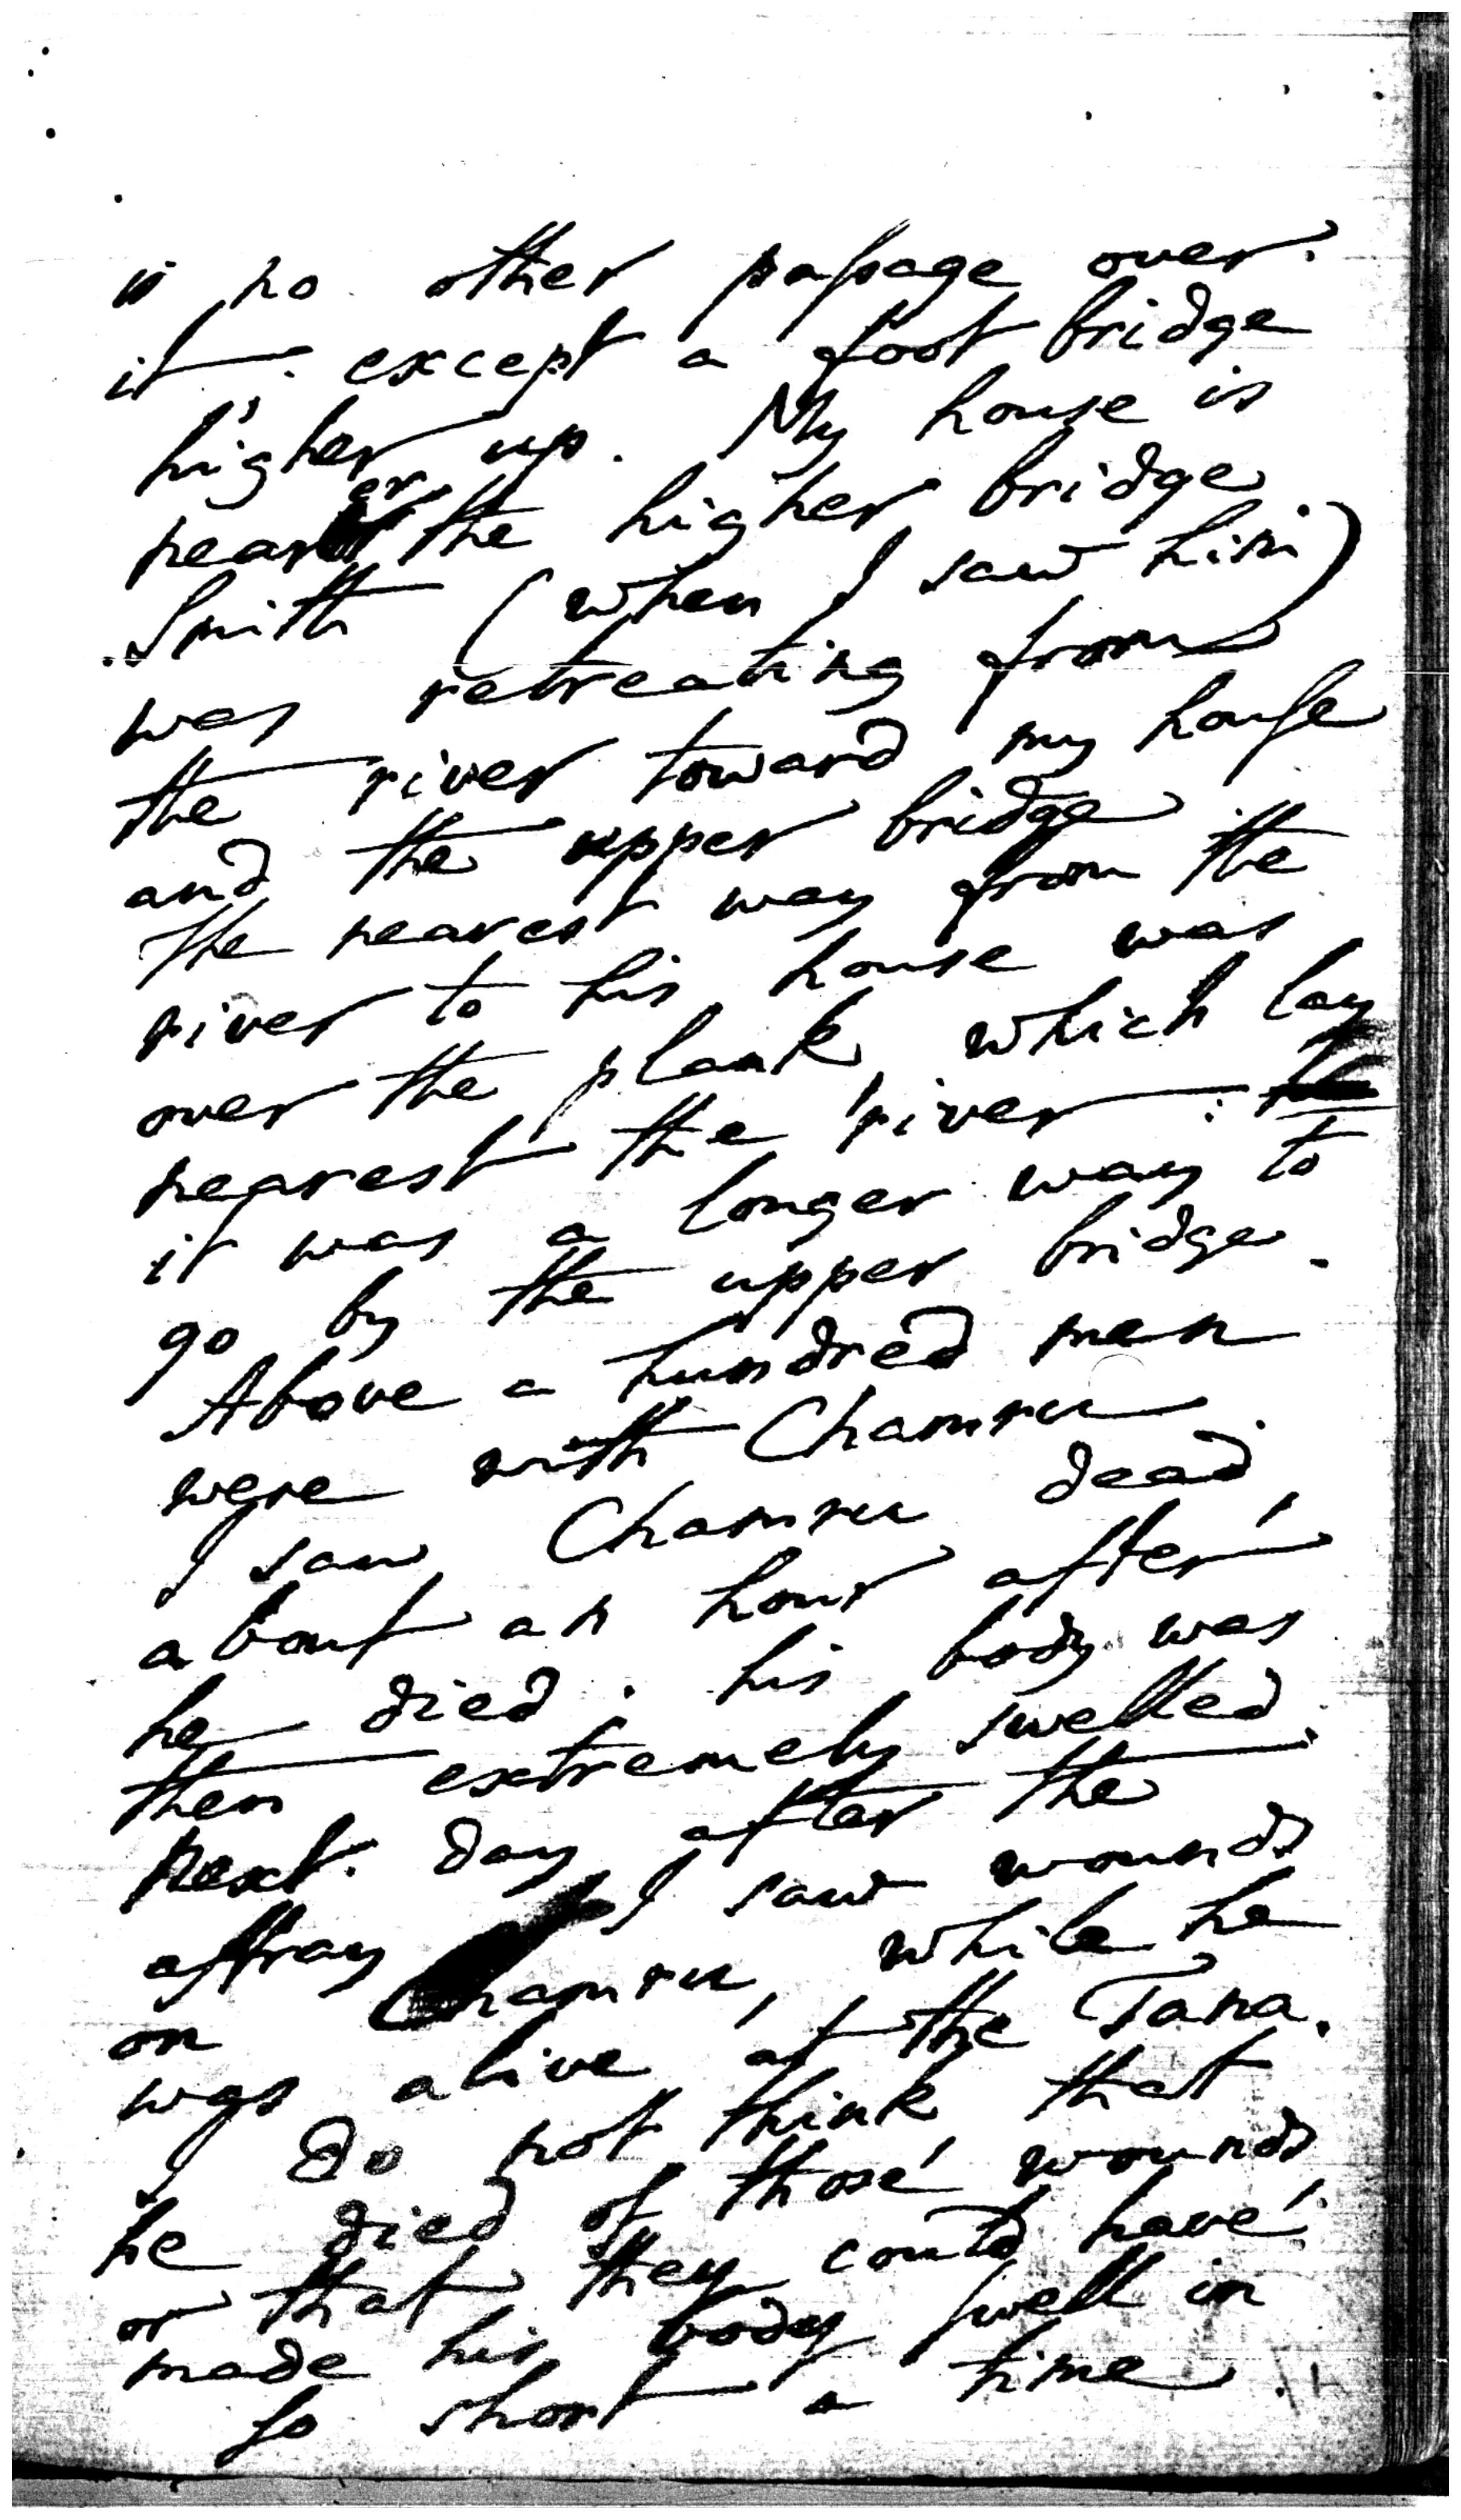 is no other passage over
it except a foot bridge
higher up. My house is
nearer the higher bridge
Smith (when I saw him)
was retreating from
the river toward my house
and the upper bridge
the nearest way from the
river to his house was
over the plank, which lay
nearest the river:
it was a longer way to
go by the upper bridge.
Above a hundred men
were with Chamru
I saw Chamru dead,
about an hour after
he died; his body was
then extremely swelled;
next day after the
affray I saw wounds
on Chamru, while he
was alive at the Tana.
I do not think that
he died of those wounds,
or that they could have
made his body swell in
so short a time.